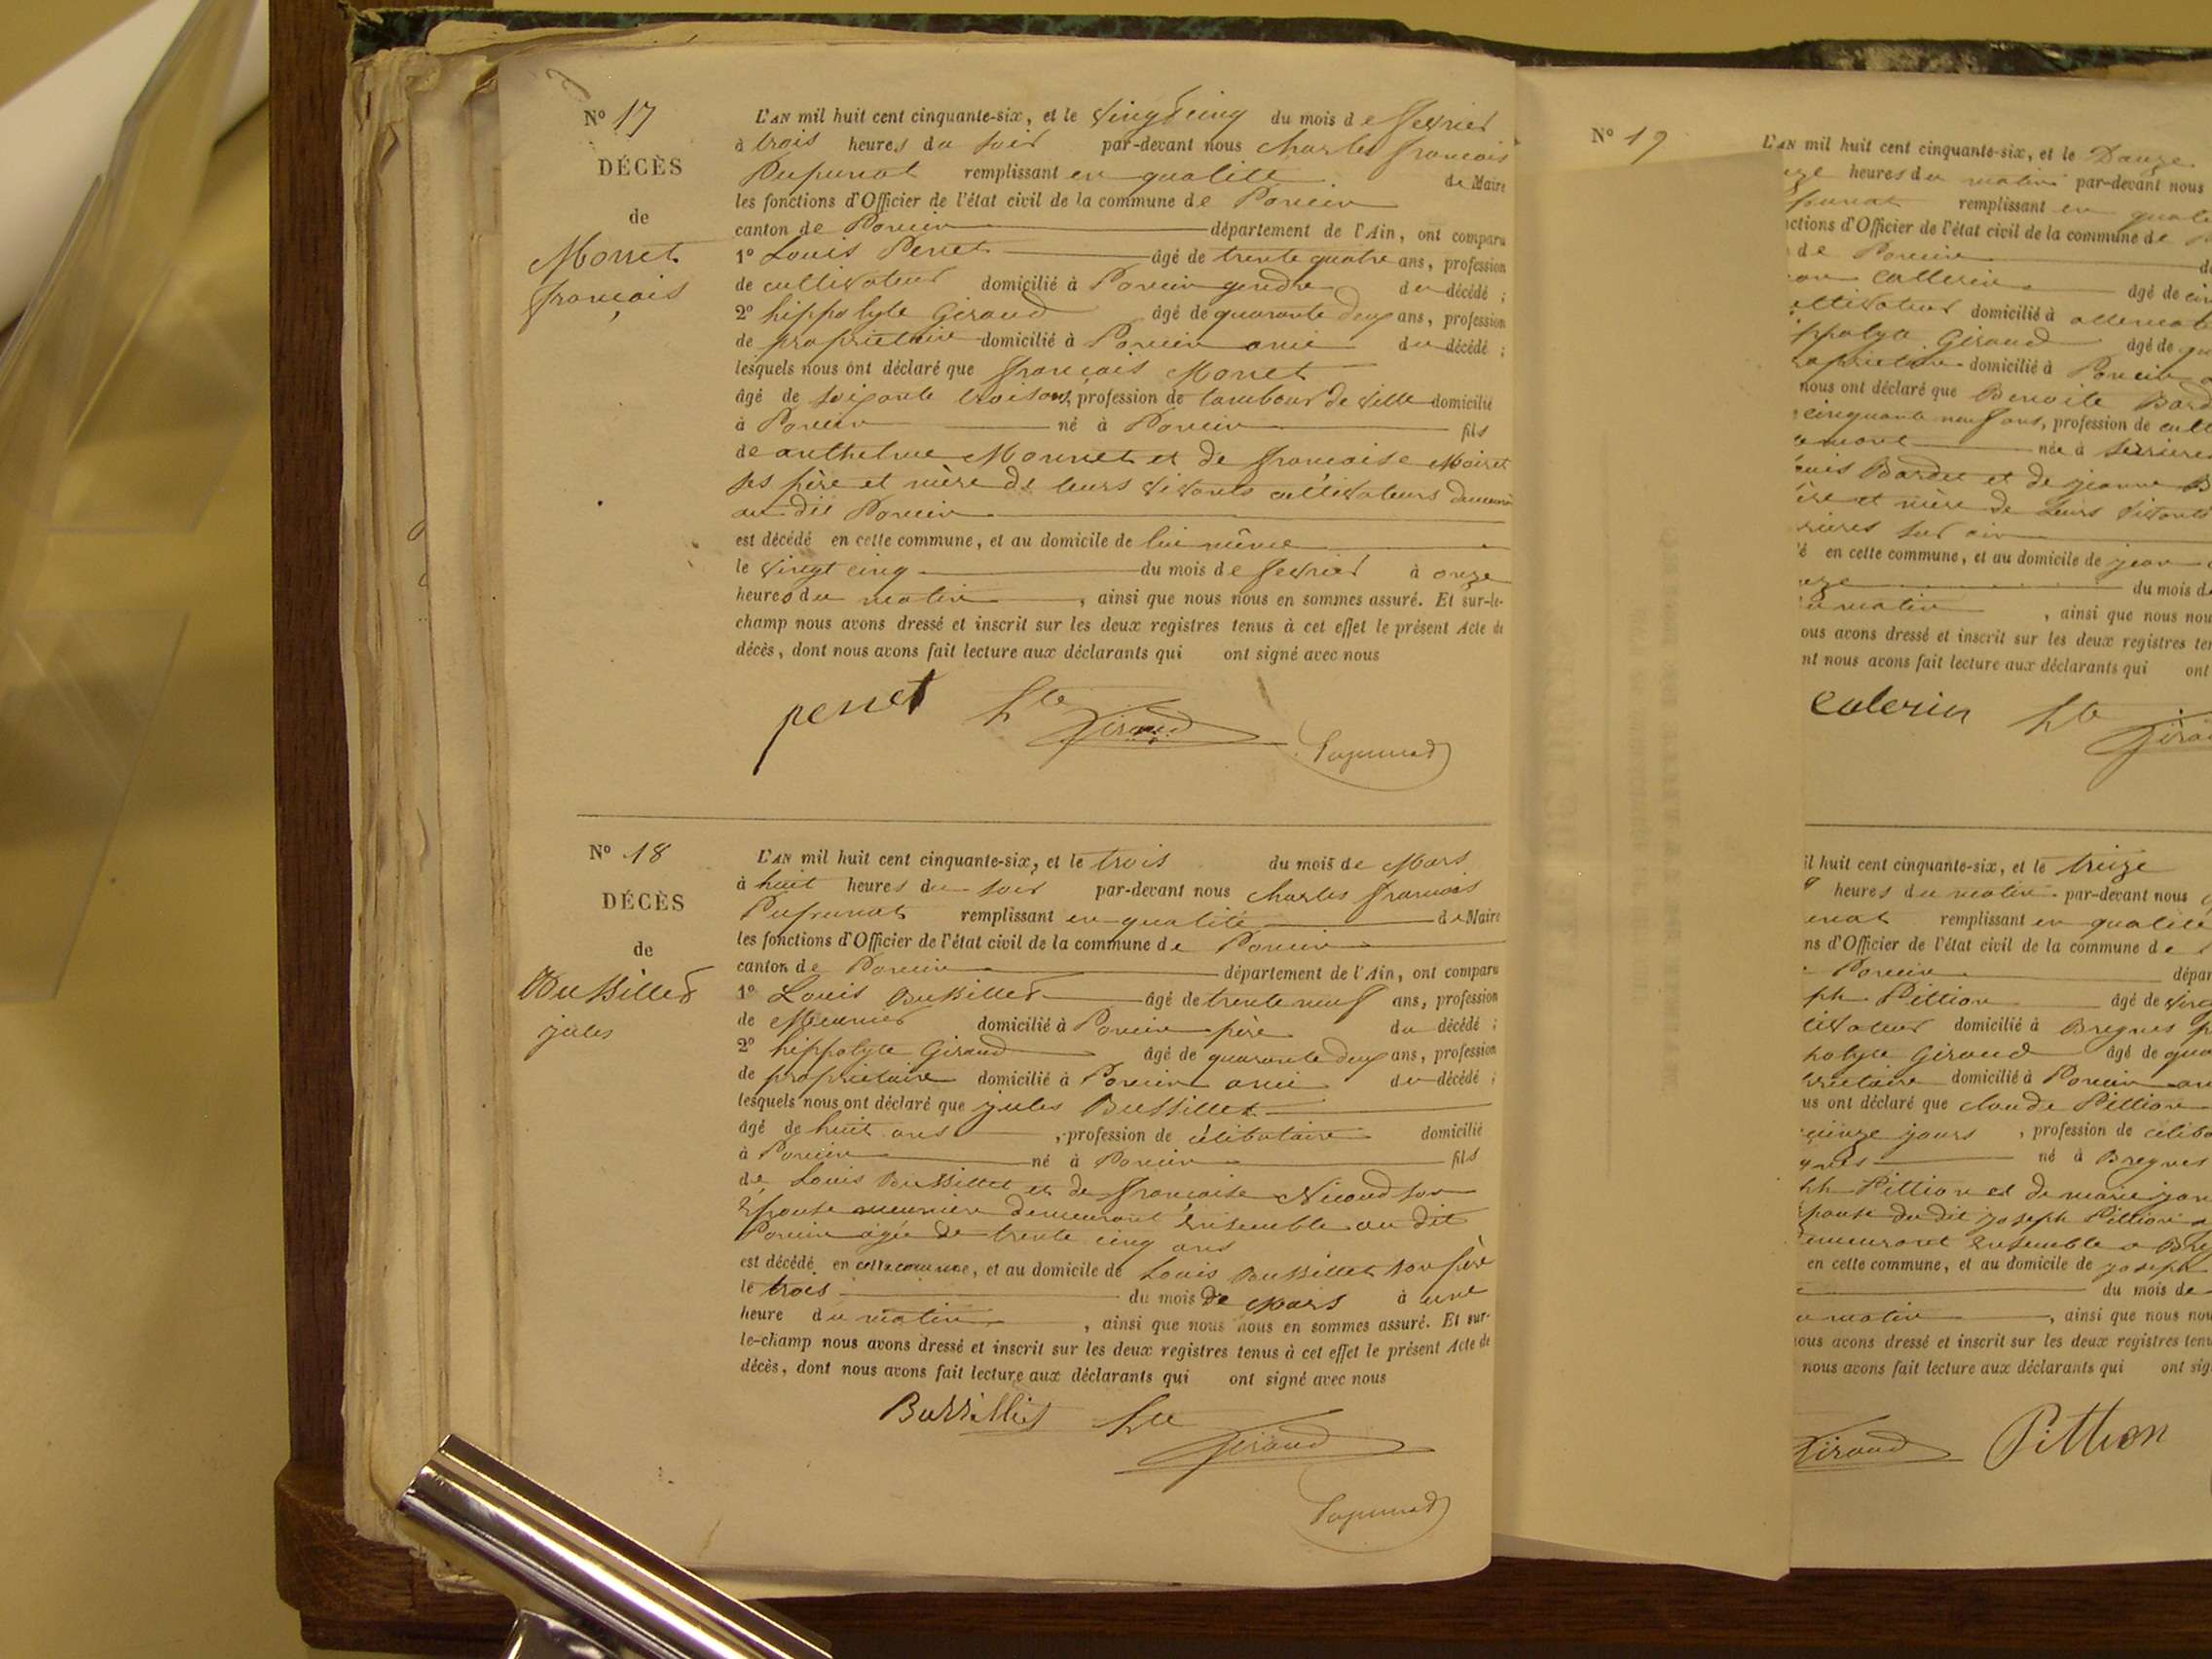 N° 17
DÉCÈS
de
Monet
françois
L'AN mil huit cent cinquante-six, et le vingt cinq du mois de fevrier
à trois heures du soir par-devant nous Charles françois
Pupunat remplissant en qualité de Maire
les fonctions d'Officier de l'état civil de la commune de Poncin
canton de Poncin département de l'Ain, ont comparu
1° Louis Perret âgé de trente quatre ans, profession
de cultivateur domicilié à Poncin gendre du décédé ;
2° hippolyte Giraud âgé de quarante deux ans, profession
de proprietaire domicilié à Poncin ami du décédé ;
lesquels nous ont déclaré que françois Monet
âgé de soixante trois ans, profession de tambour de ville domicilié
à Poncin né à Poncin fils
de anthelme Monnet et de francoise Moiret
ses père et mère de leurs vivants cultivateurs
au dit Poncin
est décédé en cette commune, et au domicile de lui même
le vingt cinq du mois de fevrier à onze
heures du matin, ainsi que nous nous en sommes assuré. Et sur-le-
champ nous avons dressé et inscrit sur les deux registres tenus à cet effet le présent Acte de
décès, dont nous avons fait lecture aux déclarants qui ont signé avec nous
perret hte Giraud Pupunat
N° 18
DÉCÈS
de
Bussillet
jules
L'AN mil huit cent cinquante-six, et le trois du mois de Mars
à huit heures du soir par-devant nous Charles françois
Pupunat remplissant en qualité de Maire
les fonctions d'Officier de l'état civil de la commune de Poncin
canton de Poncin département de l'Ain, ont comparu
1° Louis Bussillet âgé de trente neuf ans, profession
de Meunier domicilié à Poncin père du décédé ;
2° hippolyte Giraud âgé de quarante deux ans, profession
de proprietaire domicilié à Poncin ami du décédé ;
lesquels nous ont déclaré que jules Bussillet
âgé de huit ans, profession de célibataire domicilié
à Poncin né à Poncin fils
de Louis Bussillet et de françoise Nicoud son
épouse meunière demeurant ensemble au dit
Poncin agée de trente cinq ans
est décédé en cette commune, et au domicile de Louis Bussillet son père
le trois du mois de Mars à une
heure du matin, ainsi que nous nous en sommes assuré. Et sur-
le-champ nous avons dressé et inscrit sur les deux registres tenus à cet effet le présent Acte de
décès, dont nous avons fait lecture aux déclarants qui ont signé avec nous
Bussillet hte Giraud
Pupunat
N° 19
L'AN mil huit cent cinquante-six, et le Douze
heures du matin par-devant nous
remplissant en
ctions d'Officier de l'état civil de la commune de
de Poncin
Callerin âgé de
domicilié à
Giraud âgé de
domicilié à Poncin
nous ont déclaré que Benoite
cinquante neuf ans, profession de
née à
Bardet et de jeanne
et mère de leurs vivants
sur ain
en cette commune, et au domicile de jean
du mois de
matin, ainsi que nous nou
ous avons dressé et inscrit sur les deux registres ten
nt nous avons fait lecture aux déclarants qui ont
Calerin hte Girau
il huit cent cinquante-six, et le treize
heures du matin par-devant nous
remplissant en qualité
ns d'Officier de l'état civil de la commune de
Poncin dépar
ph Pittion âgé de
domicilié à Bregnes
Giraud âgé de
domicilié à Poncin
us ont déclaré que claude Pittion
quinze jours, profession de
né à Bregnes
Pittion et de marie
du dit joseph Pittion
ensemble a
en cette commune, et au domicile de joseph
du mois de
matin, ainsi que nous nou
ous avons dressé et inscrit sur les deux registres tenu
nous avons fait lecture aux déclarants qui ont sig
Giraud Pittion